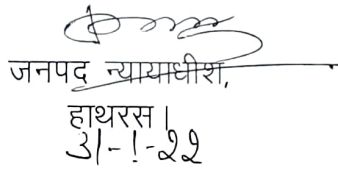 जनपद न्यायाधीश,
हाथरस।
31-1-22